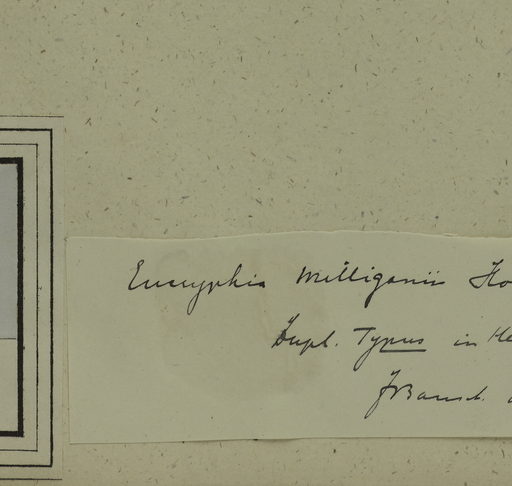 Eucryphia Milliganii Ho
Dupl. Typus in He
J Bausch.